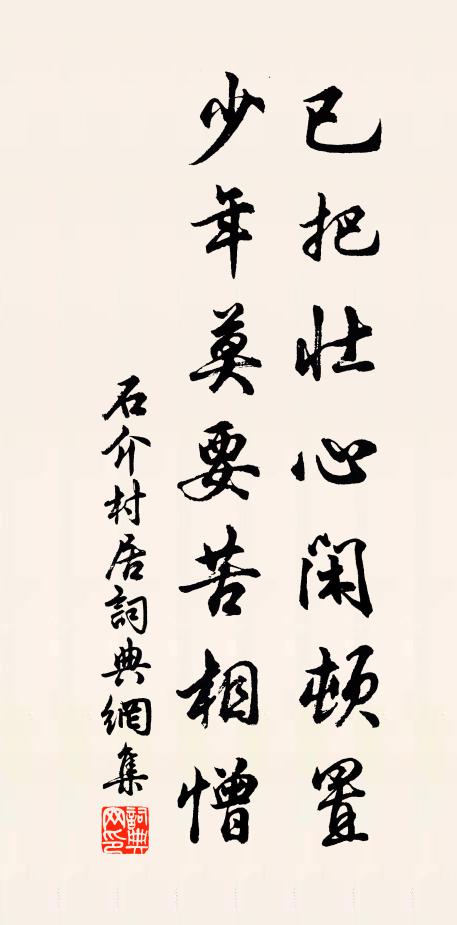 已把壮心閑頓置
少年莫要苦相憎
石介村居詞典網集
詞典网印